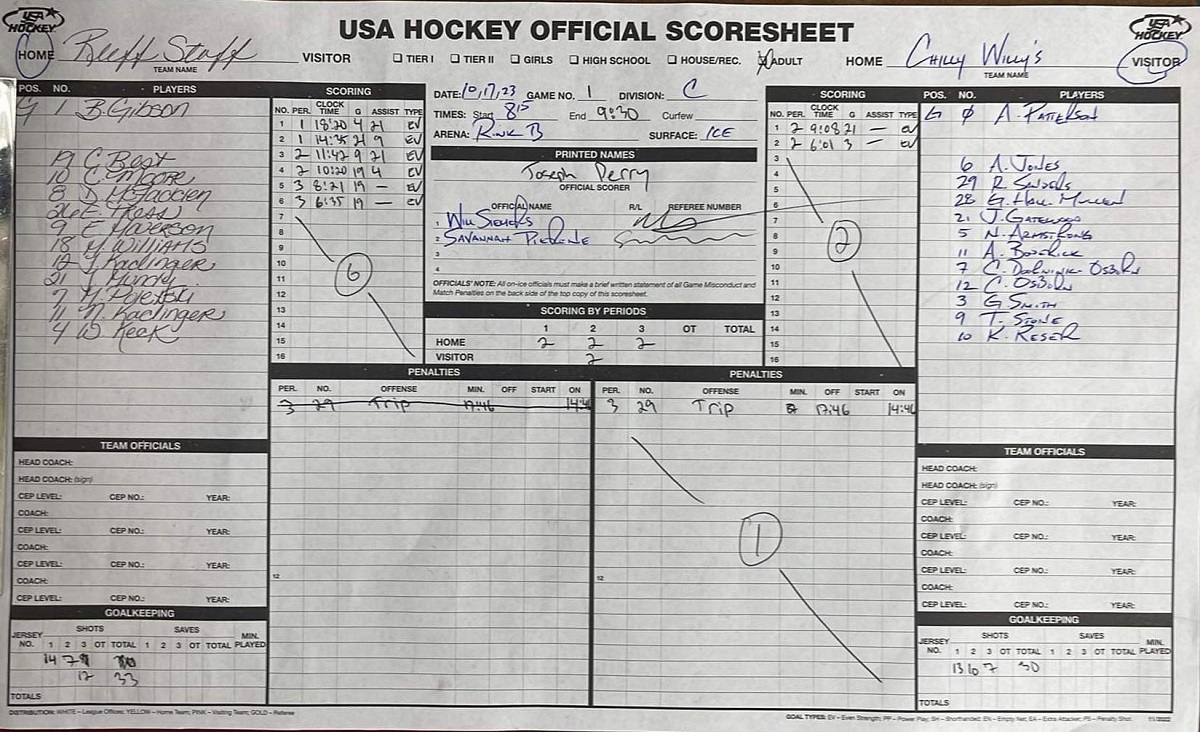 USA HOCKEY
USA HOCKEY OFFICIAL SCORESHEET
USA HOCKEY
HOME Bluff Staff VISITOR
TEAM NAME
TIER I TIER II GIRLS HIGH SCHOOL HOUSE/REC. ADULT
HOME CHILLY WILLY'S VISITOR
TEAM NAME
POS. NO. PLAYERS
G 1 B. Gibson
19 C. Best
10 C. Moore
8 D. McFadden
26 E. Tress
9
18 M. Williams
12 J. Kaclinger
21 Mundy
7
11 N. Kaclinger
4 W. Keck
SCORING
NO. PER. CLOCK TIME G ASSIST TYPE
1 1 18:20 4 21 EV
2 1 14:35 21 9 EV
3 2 11:42 9 21 EV
4 2 10:20 19 4 EV
5 3 8:21 19 — EV
6 3 6:35 19 — EV
7
8
9
10
11
12
13
14
15
16
6
DATE: 10,17,23 GAME NO. 1 DIVISION: C
TIMES: Start 8:15 End 9:30 Curfew
ARENA: RINK B SURFACE: ICE
PRINTED NAMES
Joseph Perry
OFFICIAL SCORER
OFFICIAL NAME R/L REFEREE NUMBER
1 WILL
2 SAVANNAH
3
4
OFFICIALS' NOTE: All on-ice officials must make a brief written statement of all Game Misconduct and
Match Penalties on the back side of the top copy of this scoresheet.
SCORING BY PERIODS
1 2 3 OT TOTAL
HOME 2 2 2
VISITOR 2
SCORING
NO. PER. CLOCK TIME G ASSIST TYPE
1 2 9:08 21 — EV
2 2 6:01 3 — EV
3
4
5
6
7
8
9
10
11
12
13
14
15
16
2
POS. NO. PLAYERS
G 0 A. PATTERSON
6 A. JONES
29 R.
28 G. HALL
21 J. GATEWOOD
5 N. ARMSTRONG
11 A.
7 C. OSBORN
12 C. OSBORN
3 G. SMITH
9 T. STONE
10 K. RESER
PENALTIES
PER. NO. OFFENSE MIN. OFF START ON
3 29 Trip 17:46 14:46
12
PENALTIES
PER. NO. OFFENSE MIN. OFF START ON
3 29 Trip 2 17:46 14:46
1
12
TEAM OFFICIALS
HEAD COACH:
HEAD COACH: (sign)
CEP LEVEL: CEP NO.: YEAR:
COACH:
CEP LEVEL: CEP NO.: YEAR:
COACH:
CEP LEVEL: CEP NO.: YEAR:
COACH:
CEP LEVEL: CEP NO.: YEAR:
GOALKEEPING
JERSEY NO. SHOTS SAVES MIN. PLAYED
1 2 3 OT TOTAL 1 2 3 OT TOTAL
14 7
12 33
TOTALS
TEAM OFFICIALS
HEAD COACH:
HEAD COACH: (sign)
CEP LEVEL: CEP NO.: YEAR:
COACH:
CEP LEVEL: CEP NO.: YEAR:
COACH:
CEP LEVEL: CEP NO.: YEAR:
COACH:
CEP LEVEL: CEP NO.: YEAR:
GOALKEEPING
JERSEY NO. SHOTS SAVES MIN. PLAYED
1 2 3 OT TOTAL 1 2 3 OT TOTAL
13 10 7 30
TOTALS
DISTRIBUTION: WHITE – League Offices; YELLOW – Home Team; PINK – Visiting Team; GOLD – Referee
GOAL TYPES: EV – Even Strength; PP – Power Play; SH – Shorthanded; EN – Empty Net; EA – Extra Attacker; PS – Penalty Shot 11/2022